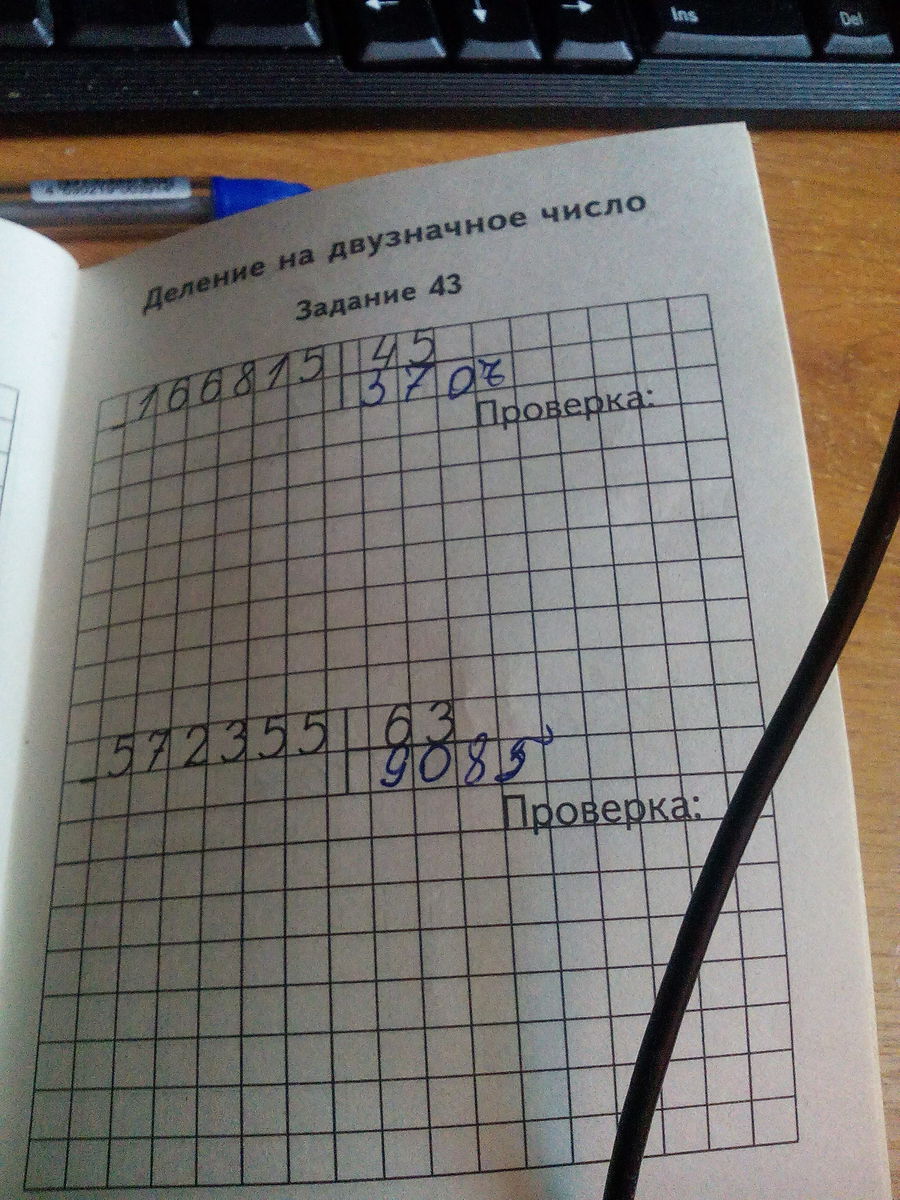 Ins
Del
Деление на двузначное число
Задание 43
166815 45
3707
Проверка:
572355 63
9085
Проверка: